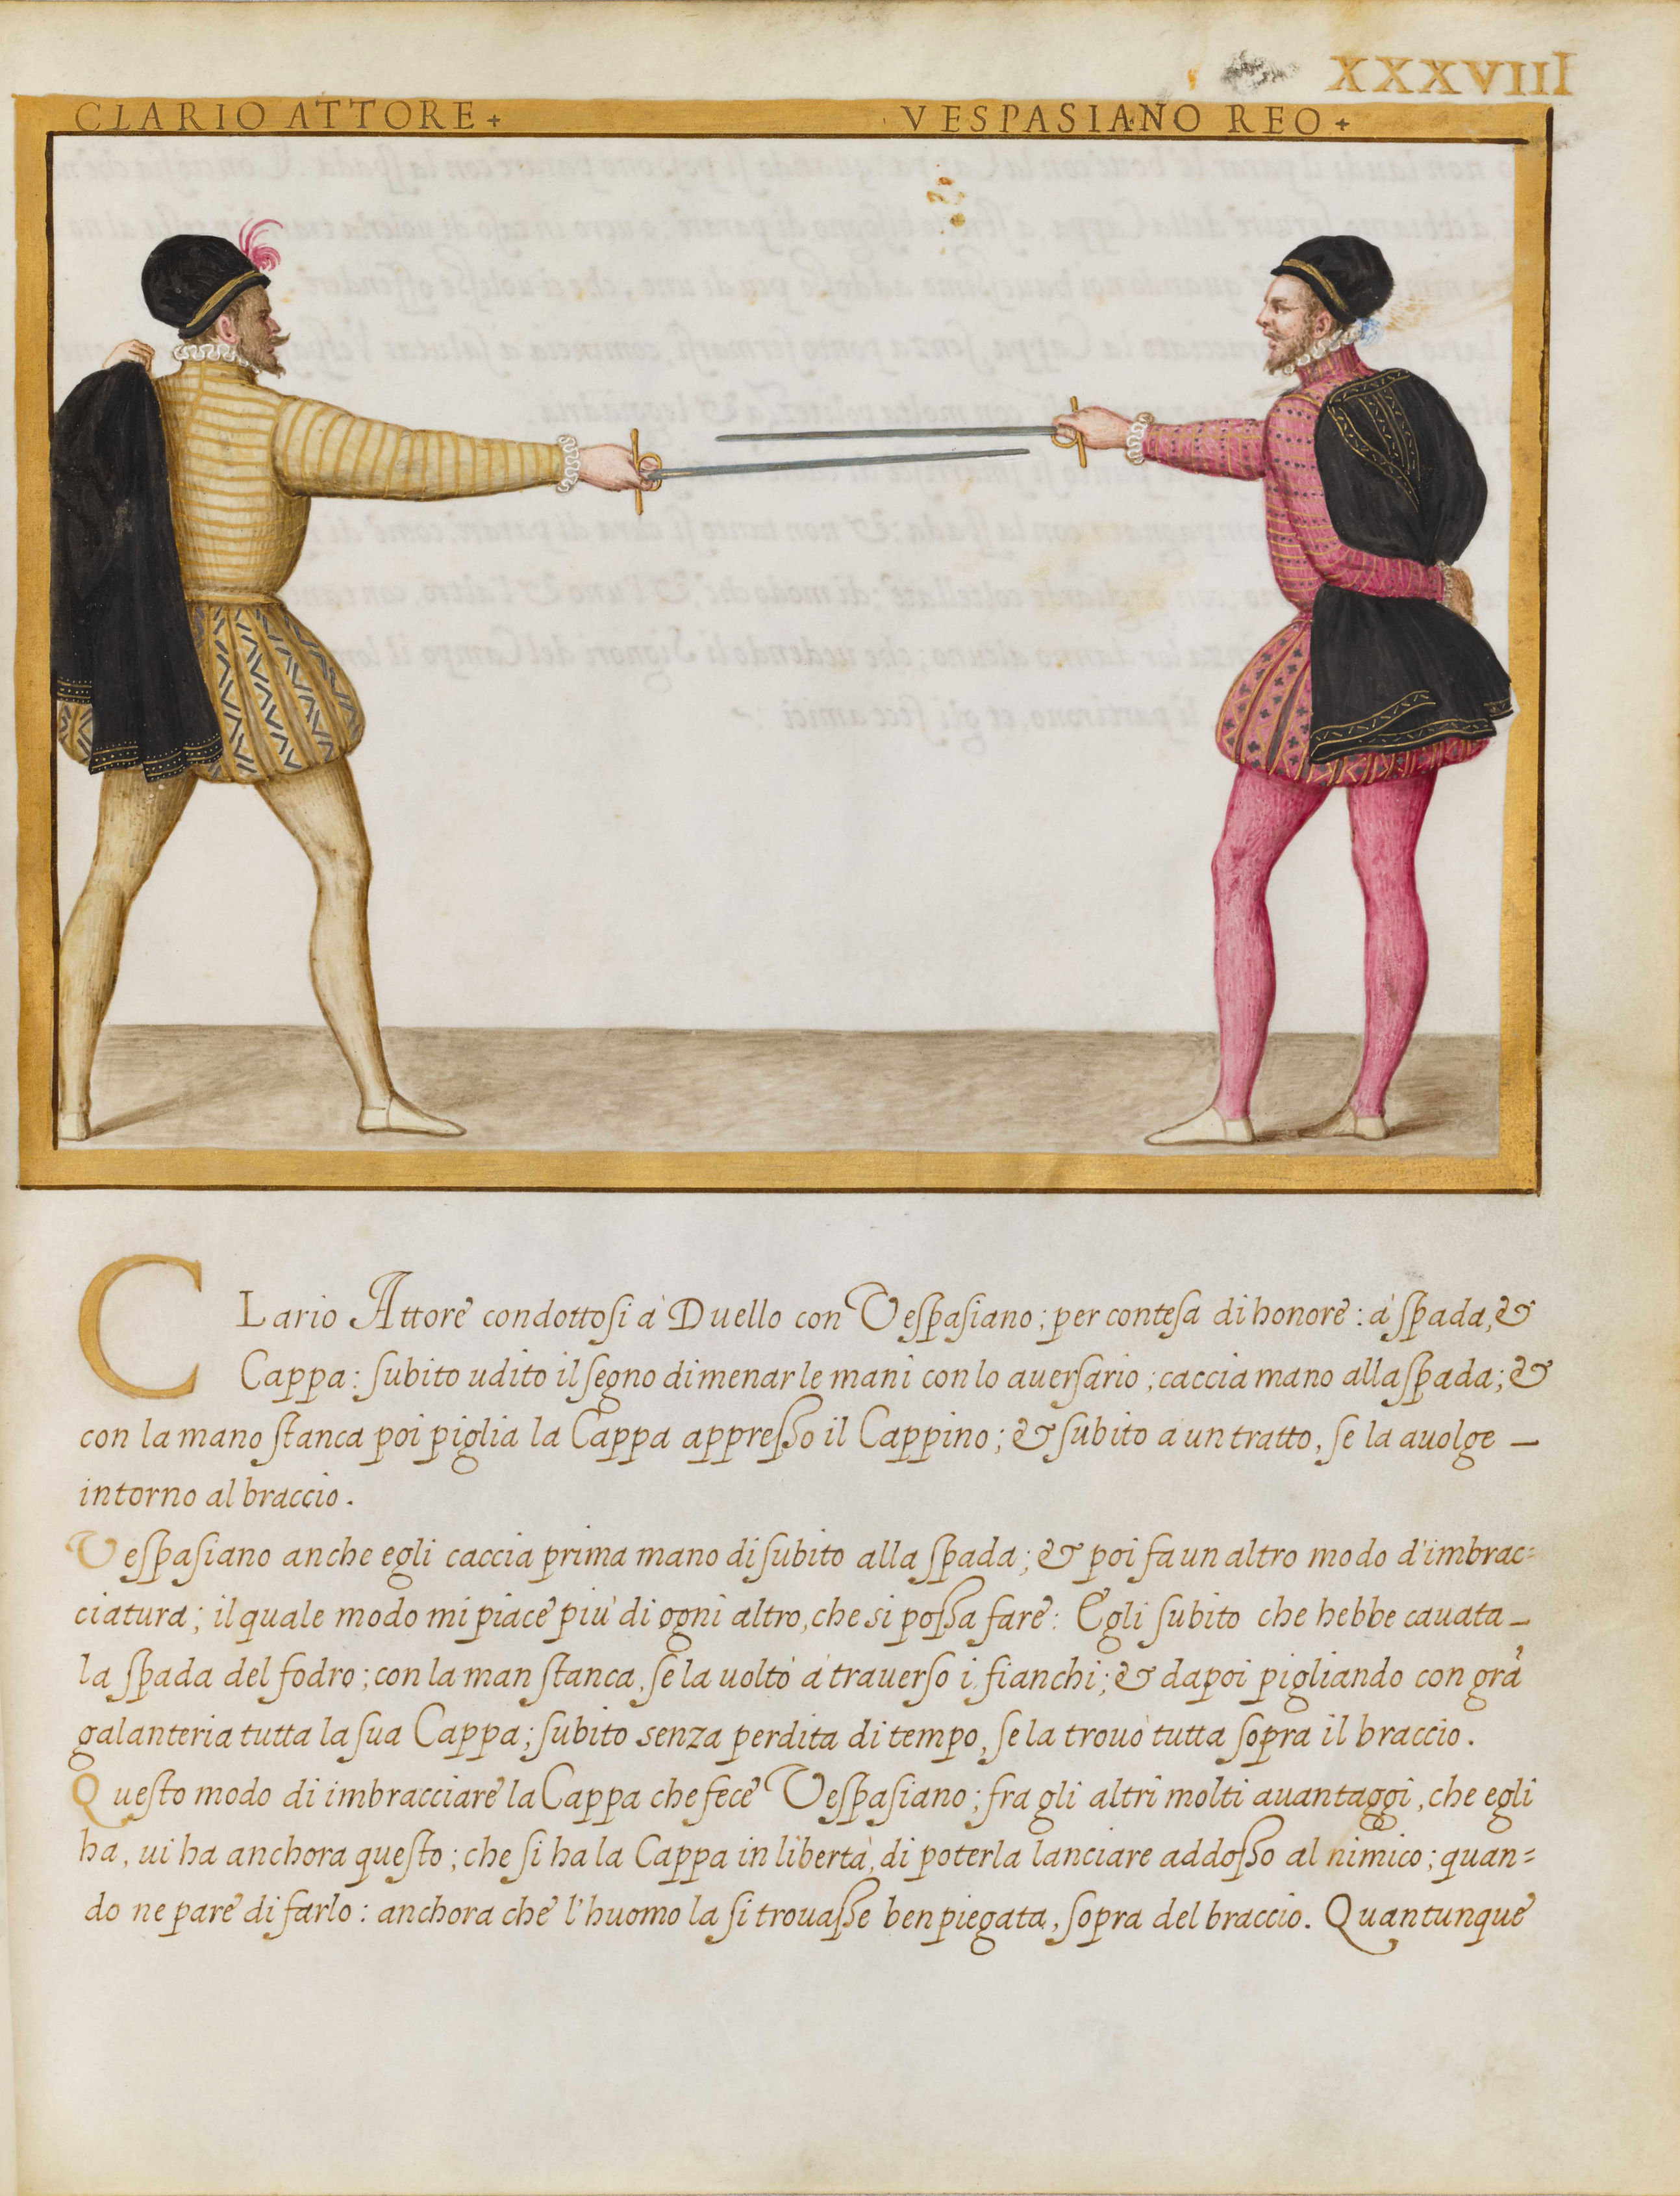 XXXVIIII
CLARIO ATTORE+ VESPASIANO REO+
CLario Attore condottosi à Duello con Vespasiano; per contesa di honore: à spada, &
Cappa: subito udito il segno di menar le mani con lo auersario; caccia mano alla spada; &
con la mano stanca poi piglia la Cappa appresso il Cappino; & subito à un tratto, se la auolge –
intorno al braccio.
Vespasiano anche egli caccia prima mano di subito alla spada; & poi fa un altro modo d'imbrac=
ciatura; il quale modo mi piace più di ogni altro, che si possa fare: Egli subito che hebbe cauata –
la spada del fodro; con la man stanca, se la uoltò à trauerso i fianchi; & dapoi pigliando con grã
galanteria tutta la sua Cappa; subito senza perdita di tempo, se la trouò tutta sopra il braccio.
Questo modo di imbracciare la Cappa che fece Vespasiano; fra gli altri molti auantaggi, che egli
ha, ui ha anchora questo; che si ha la Cappa in libertà, di poterla lanciare addosso al nimico; quan=
do ne pare di farlo: anchora che l'huomo la si trouasse ben piegata, sopra del braccio. Quantunque